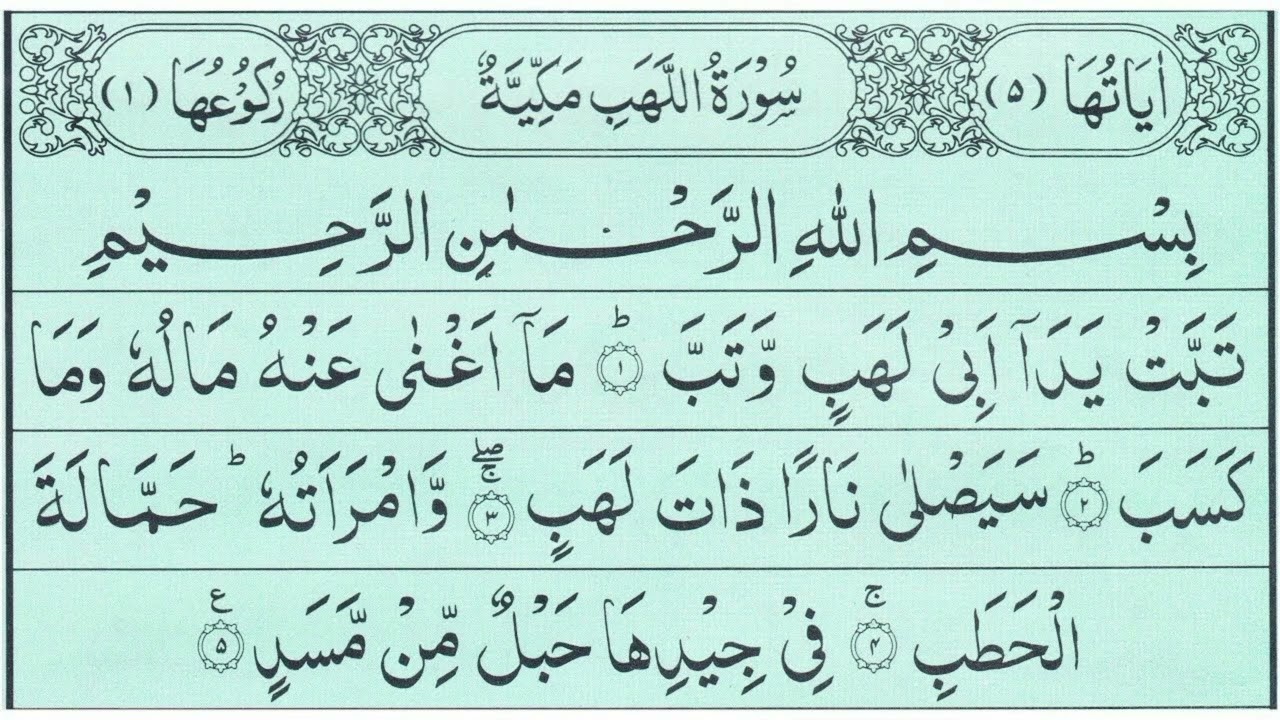 اٰيَاتُهَا (٥) سُوْرَةُ اللَّهَبِ مَكِّيَّةٌ رُكُوْعُهَا (١)
بِسْمِ اللّٰهِ الرَّحْمٰنِ الرَّحِيْمِ
تَبَّتْ يَدَآ اَبِىْ لَهَبٍ وَّتَبَّ ؕ ۝١ مَآ اَغْنٰى عَنْهُ مَالُهٗ وَمَا
كَسَبَ ؕ ۝٢ سَيَصْلٰى نَارًا ذَاتَ لَهَبٍ ۖۚ ۝٣ وَّامْرَاَتُهٗ ؕ حَمَّالَةَ
الْحَطَبِ ۚ ۝۴ فِىْ جِيْدِهَا حَبْلٌ مِّنْ مَّسَدٍ ع ۝۵